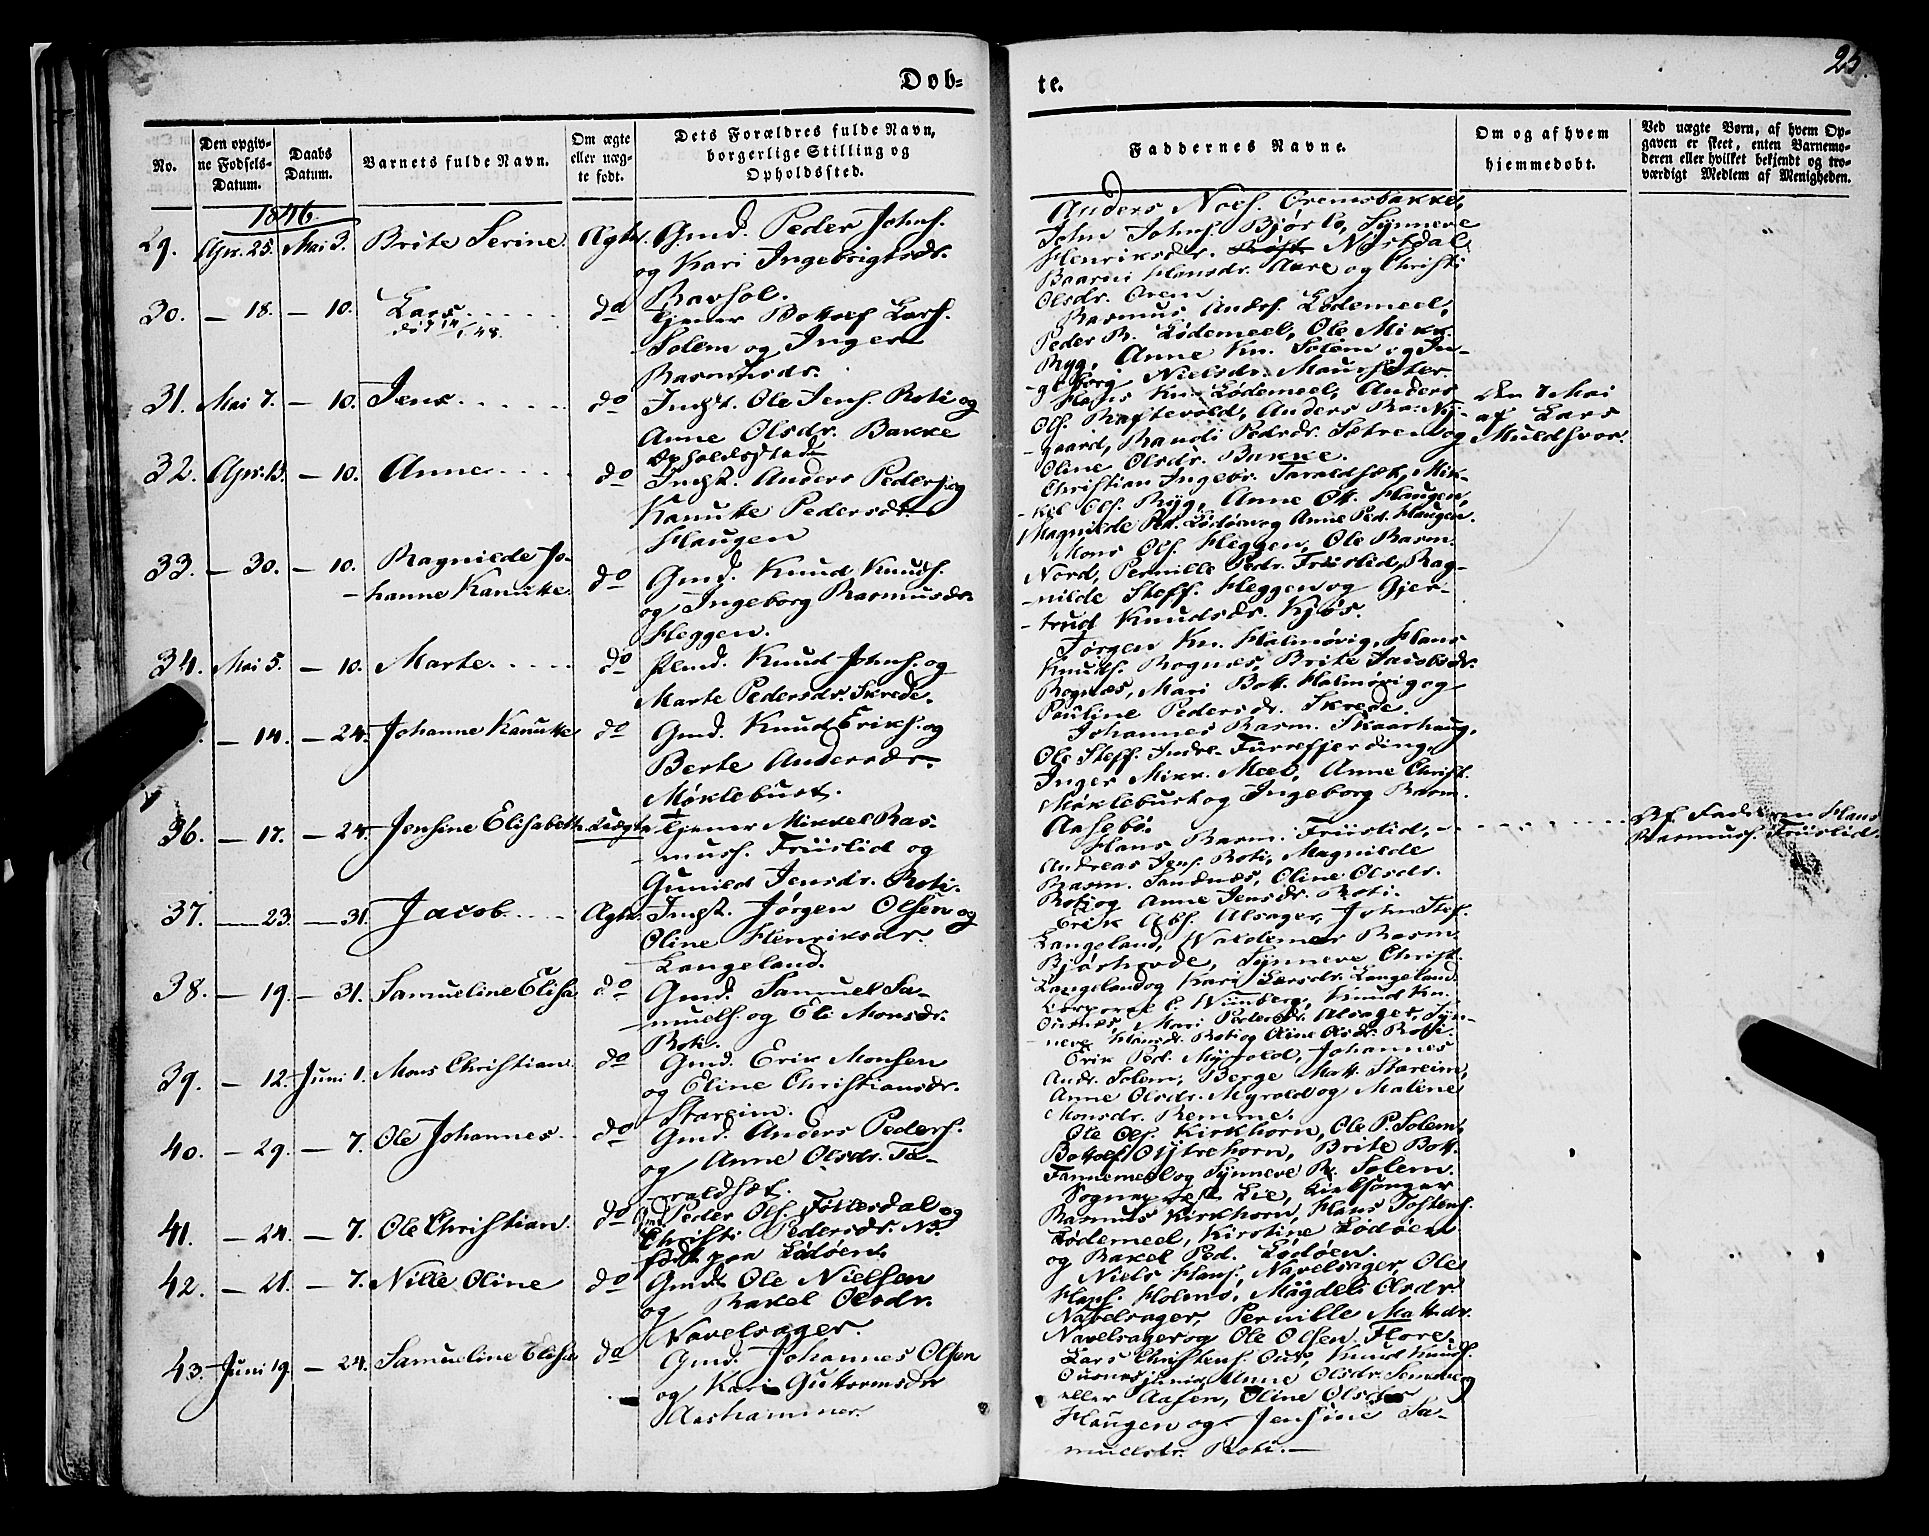 Dob-
te.
25.
No.
Den opgiv-
ne Fødsels-
Datum.
Daabs
Datum.
Barnets fulde Navn.
Om ægte
eller uæg-
te født.
Dets Forældres fulde Navn,
borgerlige Stilling og
Opholdssted.
Faddernes Navne.
Om og af hvem
hjemmedøbt.
Ved uægte Børn, af hvem Op-
gaven er skeet, enten Barnemo-
deren eller hvilket bekjendt og tro-
værdigt Medlem af Menigheden.
1846
29. Apr. 25. Mai 3. Brite Serine. Ægte.
Gmd. Peder Johns.
og Kari Ingebrigtsdr.
Ravhol.
Anders
John Johns. Bjørlo, Synneve
Henriksdr. Nøstdal
Hansdr. Aare og Christi
Olsdr.
30. — 18. — 10. Lars. do
Tjener Bottolf Lars.
Solem og Inger
Rasmusdr.
Rasmus Anders. Lødemeel,
Peder R. Lødemeel, Ole Mikk.
Ryg, Anne Kn. Solem og In-
-geborg Nielsdr. Maurseter.
31. Mai 7. — 10. Jens. do
Indst. Ole Jens. Roti og
Anne Olsdr. Bakke
Opholdsstad
Hans Kn. Lødemeel, Anders
Ols. Raftevold, Anders Ra. Ny-
-gaard, Randi Pedrsdr. Sætren og
Oline Olsdr. Bakke.
den 7 Mai
af Lars
Muldsvor.
32. Apr. 13. — 10. Anne do
Indst. Anders Peders. og
Kanutte Pedersdr.
Haugen
Christian Ingebr. Taraldsæt, Mik-
-kel Ols. Ryg, Anne Ott. Haugen,
Magnilde Ped. Lødøen og Anne Ped. Haugen.
33. — 30. — 10. Ragnilde Jo-
-hanne Kanutte. do
Gmd. Knud Knuds.
og Ingeborg Rasmusdr.
Heggen.
Mons Ols. Heggen, Ole Rasm.
Nord, Pernille Pedr. Friislid, Rag-
-nilde Steff. Heggen og Gjer-
-trud Knudsdr. Kjøs.
34. Mai 5. — 10. Marte. do
Plmd. Knud Johns. og
Marte Pedersdr. Skrede.
Jørgen Kn. Halmøvig, Hans
Knuds. Rognes, Brite Jacobsdr.
Rognæs, Mari Bott. Halmøvig og
Pauline Pedersdr. Skrede.
— 14. — 24. Johanne Kanutte do
Gmd. Knud Eriks. og
Berte Andersdr.
Møklebust.
Johannes Rasm. Skaarhaug,
Ole Steff. Indre-Furrefjerding,
Inger Mikk. Meel, Anne Christ.
Møklebust og Ingeborg Rasm.
Aasebø.
36. — 17. — 24. Jensine Elisabeth. Uægte
Tjener Mikkel Ras-
muss. Friislid og
Gunild Jensdr. Roti.
Hans Rasm. Friislid,
Andreas Jens. Roti, Magnilde
Rasm. Sandnæs, Oline Olsdr.
Roti og Anne Jensdr. Roti.
Af Fadderen Hans
Rasmuss. Friislid.
37. — 23 — 31. Jacob Ægte.
Indst. Jørgen Olsen og
Oline Henriksdr.
Langeland.
Erik Abs. Alsager, John Stef.
Langeland, Waldemar Rasm.
Bjørhovde, Synneve Christ.
Langeland og Kari Larsdr. Langeland.
38. — 19. — 31. Samueline Elisa do
Gmd. Samuel Sa-
-muels. og Eli Monsdr.
Roti.
Corporal C. Wiinberg, Knud Kn.
Ousnes, Mari Pedersdr. Alsager, Syn-
-neve Hansdr. Roti og Oline Olsdr. Roti.
39. — 12. Juni 1. Mons Christian. do
Gmd. Erik Monsen
og Eline Christiansdr.
Stareim.
Erik Ped. Myrold, Johannes
Andr. Solem, Berge Matt. Stareim,
Anne Olsdr. Myrold og Maline
Monsdr. Remme.
40. — 29. — 7. Ole Johannes. do
Gmd. Anders Peders.
og Anne Olsdr. Ta-
-raldsæt.
Ole Ols. Kirkhorn, Ole P. Solem,
Bottolf Ols. Ytrehorn, Brite Bott.
Fannemeel og Synneve R. Solem.
41. — 24. — 7. Ole Christian. do
Peder Ols. Follesdal og
Christi Pedersdr. NB.
født paa Lødøen.
Sognepræst Lie, Kirksanger
Rasmus Kirkhorn, Hans Jostens.
Lødemeel, Kirstine Lødøen
og Rakel Ped. Lødøen.
42. — 21. — 7. Nille Oline do
Gmd. Ole Nielsen
og Rakel Olsdr.
Navelsager.
Niels Hans. Navelsager, Ole
Hans. Holme, Magdeli Olsdr.
Navelsager, Pernille Mattisdr.
Navelsager og Ole Olsen Flore.
43. Juni 19. — 24. Samueline Elisa do
Gmd. Johannes Olsen
og Kari Guttormsdr
Aashammer.
Lars Christens. Ous, Knud Knuds.
Ousnes junior Anne Olsdr.
eller Aasen, Oline Olsdr.
Haugen og Jensine Sa-
muelsdr. Roti.